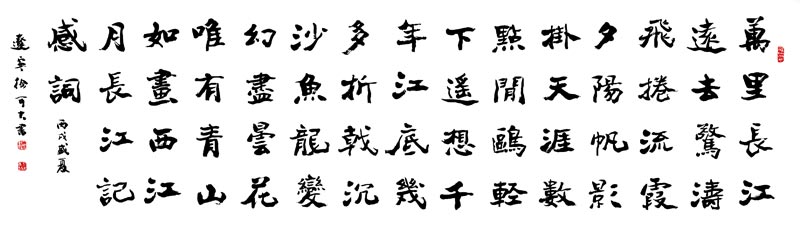 萬里長江
遠去驚濤
飛捲流霞
夕陽帆影
掛天涯數
點閒鷗輕
下遥想千
年江底幾
多折戟沉
沙魚龍變
幻盡曇花
唯有青山
如畫西江
月長江記
感詞
丙戌盛夏
徐可書